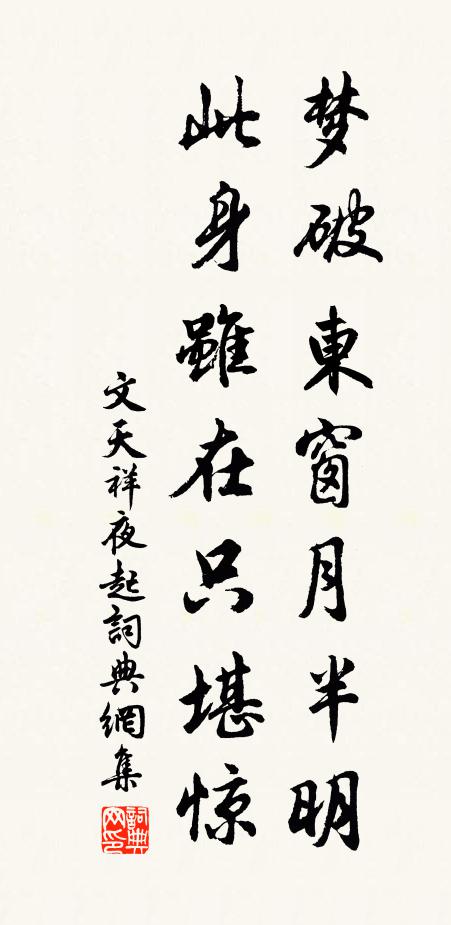 梦破東窗月半明
此身雖在只堪惊
文天祥夜起詞典網集
詞典网印